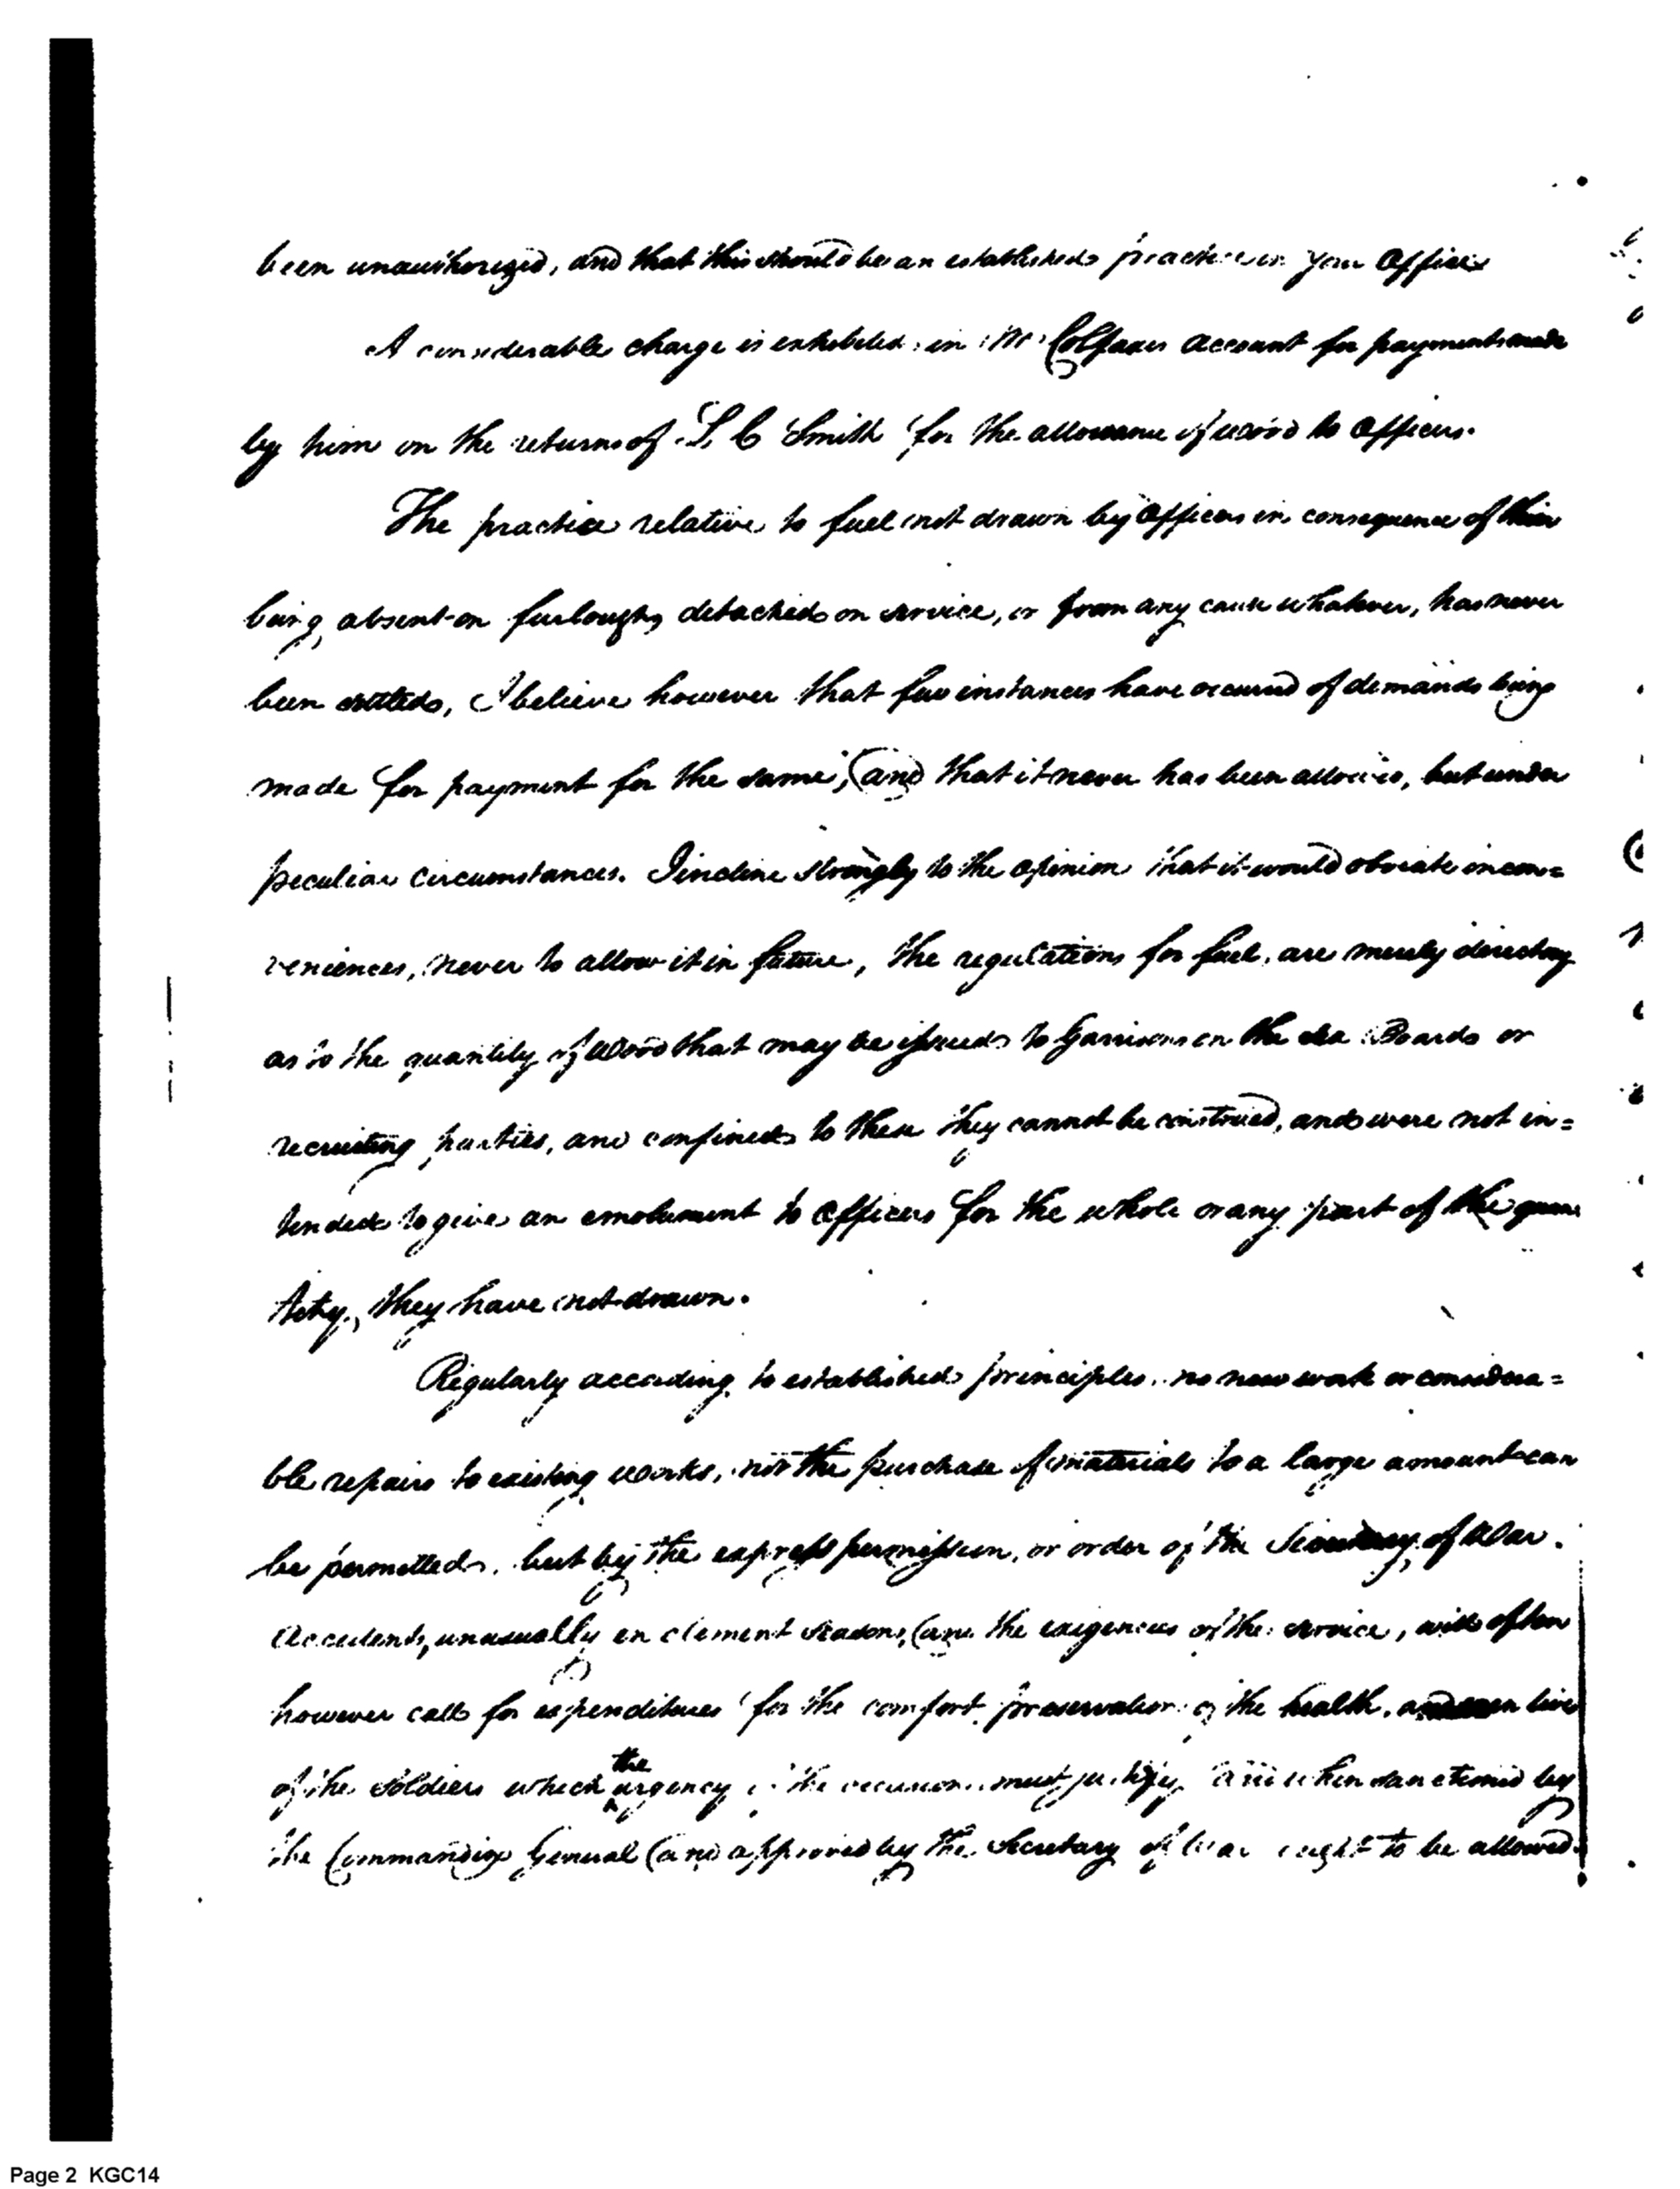 been unauthorized, and that this should be an established practice in your Office
A considerable charge is exhibited in Mr Colfaxes account for payments made
by him on the returns of S. C Smith for the allowance of wood to Officers.
The practice relative to fuel not drawn by Officers in consequence of their
being absent on furlough, detached on service, or from any cause whatever, has never
been settled, I believe however that few instances have occurred of demands being
made for payment for the same; and that it never has been allowed, but under
peculiar circumstances. I incline strongly to the opinion that it would obviate incon=
veniences, never to allow it in future, the regulations for fuel, are merely directory
as to the quantity of Wood that may be issued to Garrisons on the sea Boards or
recruiting parties, and confined to these they cannot be construed, and were not in=
tended to give an emolument to Officers for the whole or any part of the quan
tity, they have not drawn.
Regularly according to established principles, no new work or considera=
ble repairs to existing works, nor the purchase of materials to a large amount can
be permitted, but by the express permission, or order of the Secretary of War.
Accidents, unusually in clement seasons, and the exigences of the service, will often
however call for expenditures for the comfort, preservation of the health, and even lives
of the Soldiers which the urgency of the occasion must justify and when sanctioned by
the Commanding General and approved by the Secretary of War ought to be allowed.
Page 2 KGC14